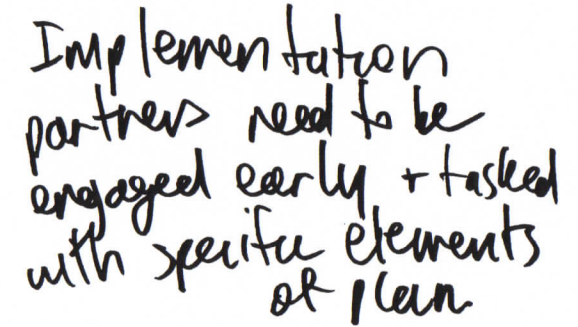 Implementation
partners need to be
engaged early + tasked
with specific elements
of plan